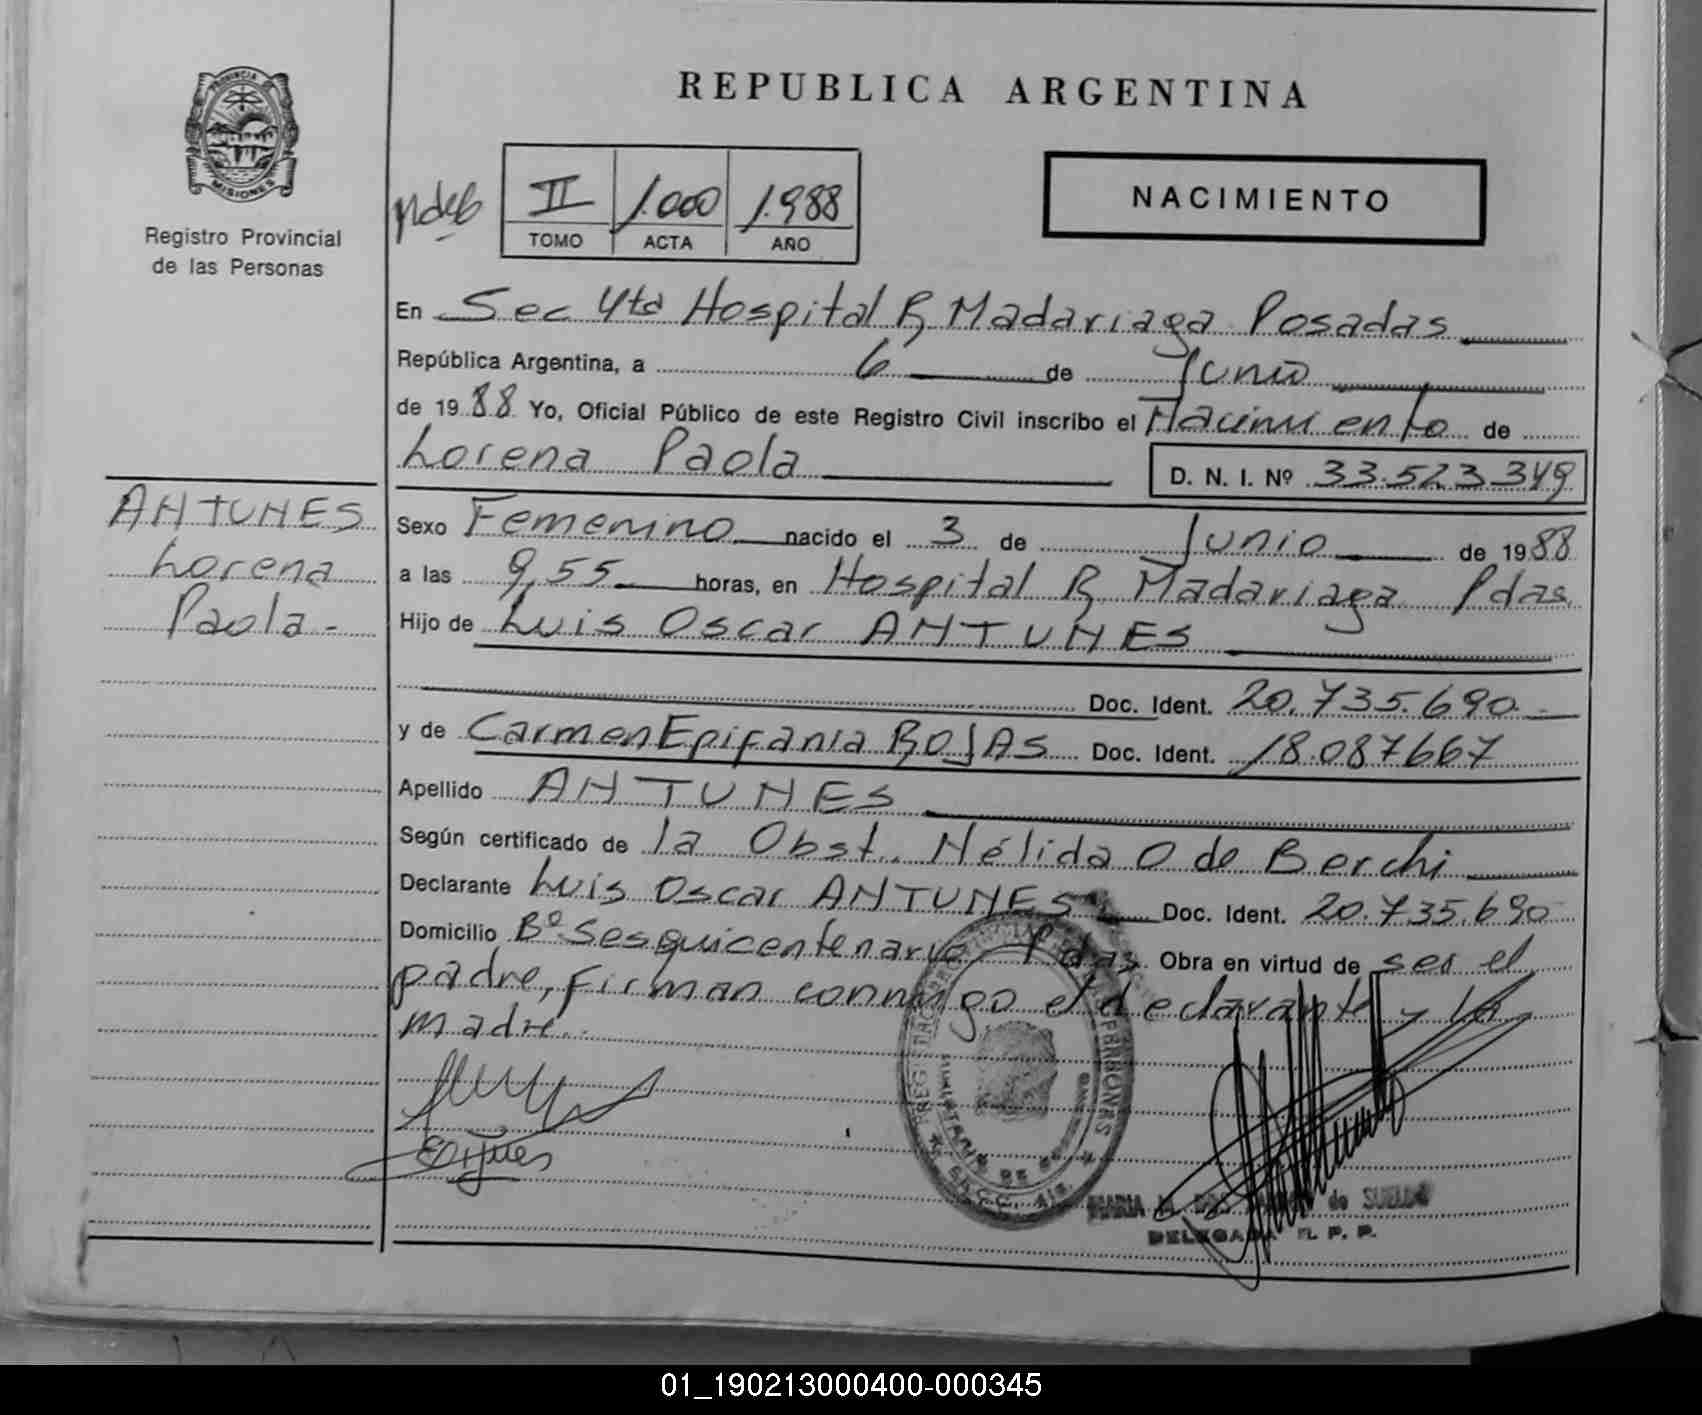 REPUBLICA ARGENTINA
PROVINCIA DE
MISIONES
Registro Provincial
de las Personas
II 1.000 1.988
TOMO ACTA AÑO
NACIMIENTO
En Sec 4ta Hospital R Madariaga Posadas
República Argentina, a 6 de Junio
de 1988 Yo, Oficial Público de este Registro Civil inscribo el Nacimiento de
Lorena Paola
D. N. I. Nº 33.523.349
ANTUNES
Lorena
Paola-
Sexo Femenino nacido el 3 de Junio de 1988
a las 9,55 horas, en Hospital R Madariaga Pdas
Hijo de Luis Oscar ANTUNES
Doc. Ident. 20.735.690
y de Carmen Epifania ROJAS Doc. Ident. 18.087667
Apellido ANTUNES
Según certificado de la Obst. Nélida O de Berchi
Declarante Luis Oscar ANTUNES Doc. Ident. 20.735.690
Domicilio Bº Sesquicentenario Pdas Obra en virtud de ser el
padre, firman conmigo el declarante y la
madre.
PERSONAS
MARIA de SUELDO
DELEGADA R. P. P.
01_190213000400-000345